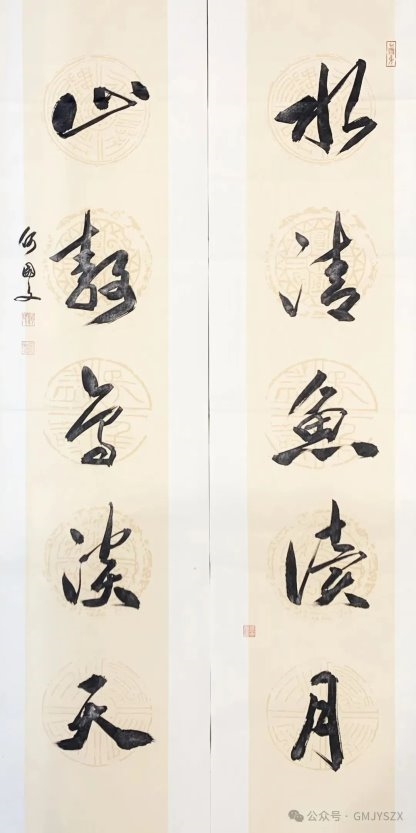 水清魚讀月
山静鸟谈天
何國文
公众号 · GMJYSZX